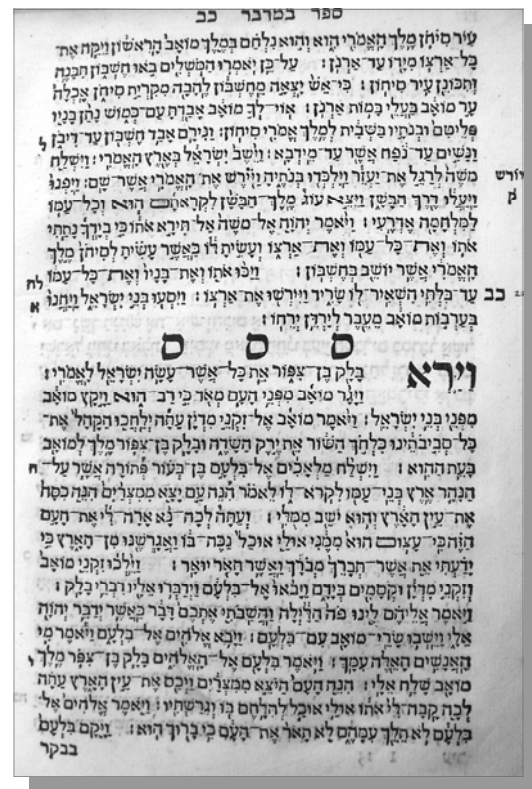 ספר במדבר כב
עיר סיחן מלך האמרי הוא והוא נלחם במלך מואב הראשון ויקח את־
כל־ארצו מידו עד־ארנן: על־כן יאמרו המשלים באו חשבון תבנה
ותכונן עיר סיחון: כי־אש יצאה מחשבון להבה מקרית סיחן אכלה
ער מואב בעלי במות ארנן: אוי־לך מואב אבדת עם־כמוש נתן בניו
פליטם ובנתיו בשבית למלך אמרי סיחון: ונירם אבד חשבון עד־דיבן
ונשים עד־נפח אשר עד־מידבא: וישב ישראל בארץ האמרי: וישלח
משה לרגל את־יעזר וילכדו בנתיה ויירש את־האמרי אשר שם: ויפנו
ויורש
ק
ויעלו דרך הבשן ויצא עוג מלך־הבשן לקראתם הוא וכל־עמו
למלחמה אדרעי: ויאמר יהוה אל־משה אל־תירא אתו כי בידך נתתי
אתו ואת־כל־עמו ואת־ארצו ועשית לו כאשר עשית לסיחן מלך
האמרי אשר יושב בחשבון: ויכו אתו ואת־בניו ואת־כל־עמו
כב עד־בלתי השאיר־לו שריד ויירשו את־ארצו: ויסעו בני ישראל ויחנו
בערבות מואב מעבר לירדן ירחו:
ס ס ס
וירא בלק בן־צפור את כל־אשר־עשה ישראל לאמרי:
ויגר מואב מפני העם מאד כי רב־הוא ויקץ מואב
מפני בני ישראל: ויאמר מואב אל־זקני מדין עתה ילחכו הקהל את־
כל־סביבתינו כלחך השור את ירק השדה ובלק בן־צפור מלך למואב
בעת ההוא: וישלח מלאכים אל־בלעם בן־בעור פתורה אשר על־
הנהר ארץ בני־עמו לקרא־לו לאמר הנה עם יצא ממצרים הנה כסה
את־עין הארץ והוא ישב ממלי: ועתה לכה־נא ארה־לי את־העם
הזה כי־עצום הוא ממני אולי אוכל נכה־בו ואגרשנו מן־הארץ כי
ידעתי את אשר־תברך מברך ואשר תאר יואר: וילכו זקני מואב
וזקני מדין וקסמים בידם ויבאו אל־בלעם וידברו אליו דברי בלק:
ויאמר אליהם לינו פה הלילה והשבתי אתכם דבר כאשר ידבר יהוה
אלי וישבו שרי־מואב עם־בלעם: ויבא אלהים אל־בלעם ויאמר מי
האנשים האלה עמך: ויאמר בלעם אל־האלהים בלק בן־צפר מלך
מואב שלח אלי: הנה העם היצא ממצרים ויכס את־עין הארץ עתה
לכה קבה־לי אתו אולי אוכל להלחם בו וגרשתיו: ויאמר אלהים אל־
בלעם לא תלך עמהם לא תאר את־העם כי ברוך הוא: ויקם בלעם
בבקר